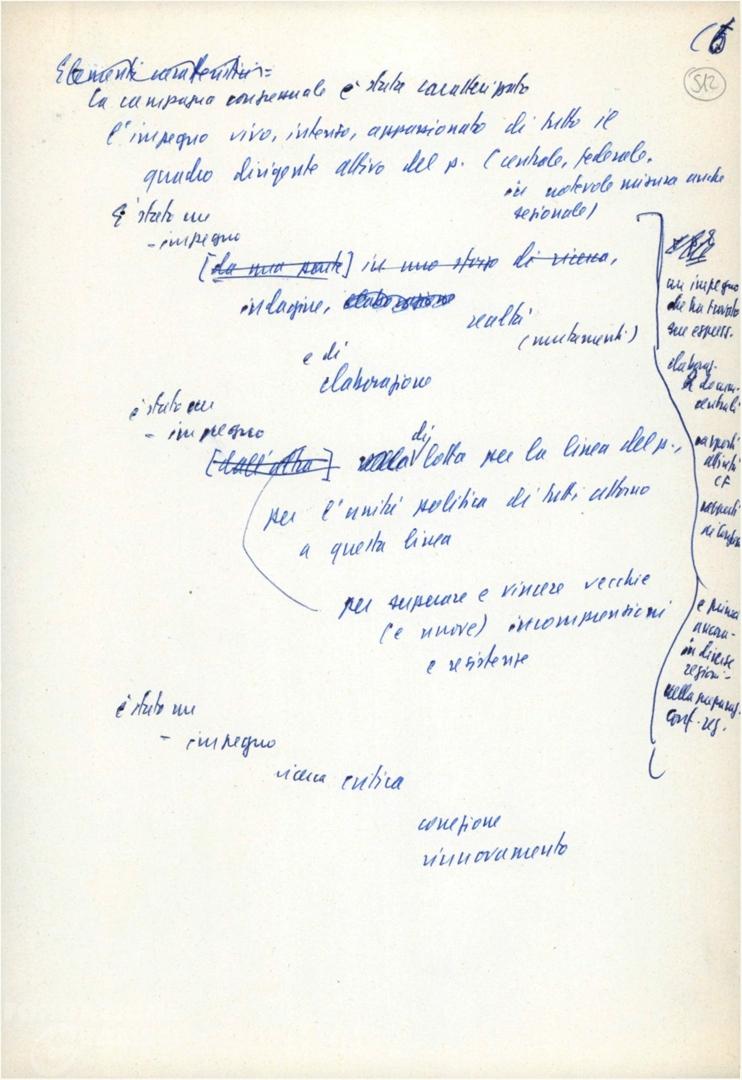 (6
512
Elementi caratteristici=
La campagna congressuale è stata caratterizzata
l'impegno vivo, intenso, appassionato di tutto il
quadro dirigente attivo del p. (centrale, federale,
in notevole misura anche
sezionale)
È stato un
- impegno
[da una parte] in uno sforzo di ricerca,
indagine, elaborazione
realtà
(mutamenti)
e di
elaborazione
è stato un
- impegno
[dall'altra] nella di lotta per la linea del p.,
per l'unità politica di tutti attorno
a questa linea
per superare e vincere vecchie
(e nuove) incomprensioni
e resistenze
è stato un
- impegno
ricerca critica
correzione
rinnovamento
un impegno
che ha trovato
sue espress.
elaboraz.
docum.
centrali
rapporti
attivi
CF
rapporti
ai Congressi
e prima
ancora -
in diverse
regioni -
nella preparaz.
Conf. reg.